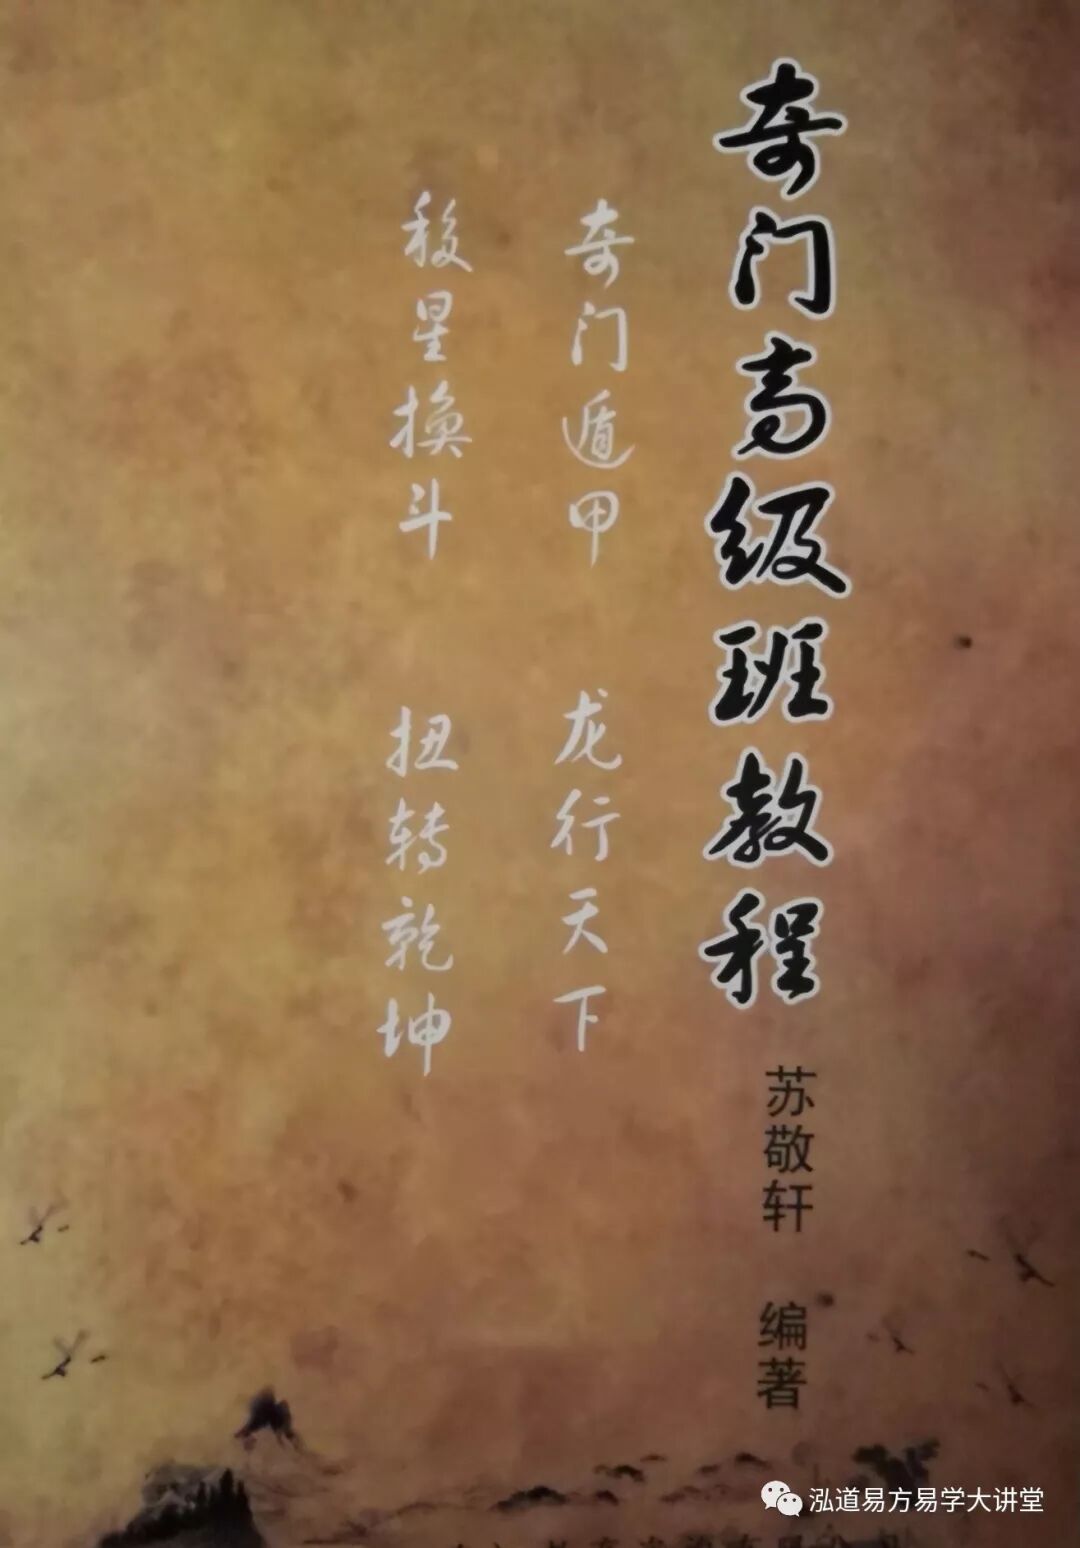 奇门高级班教程
苏敬轩 编著
奇门遁甲 龙行天下
移星换斗 扭转乾坤
泓道易方易学大讲堂